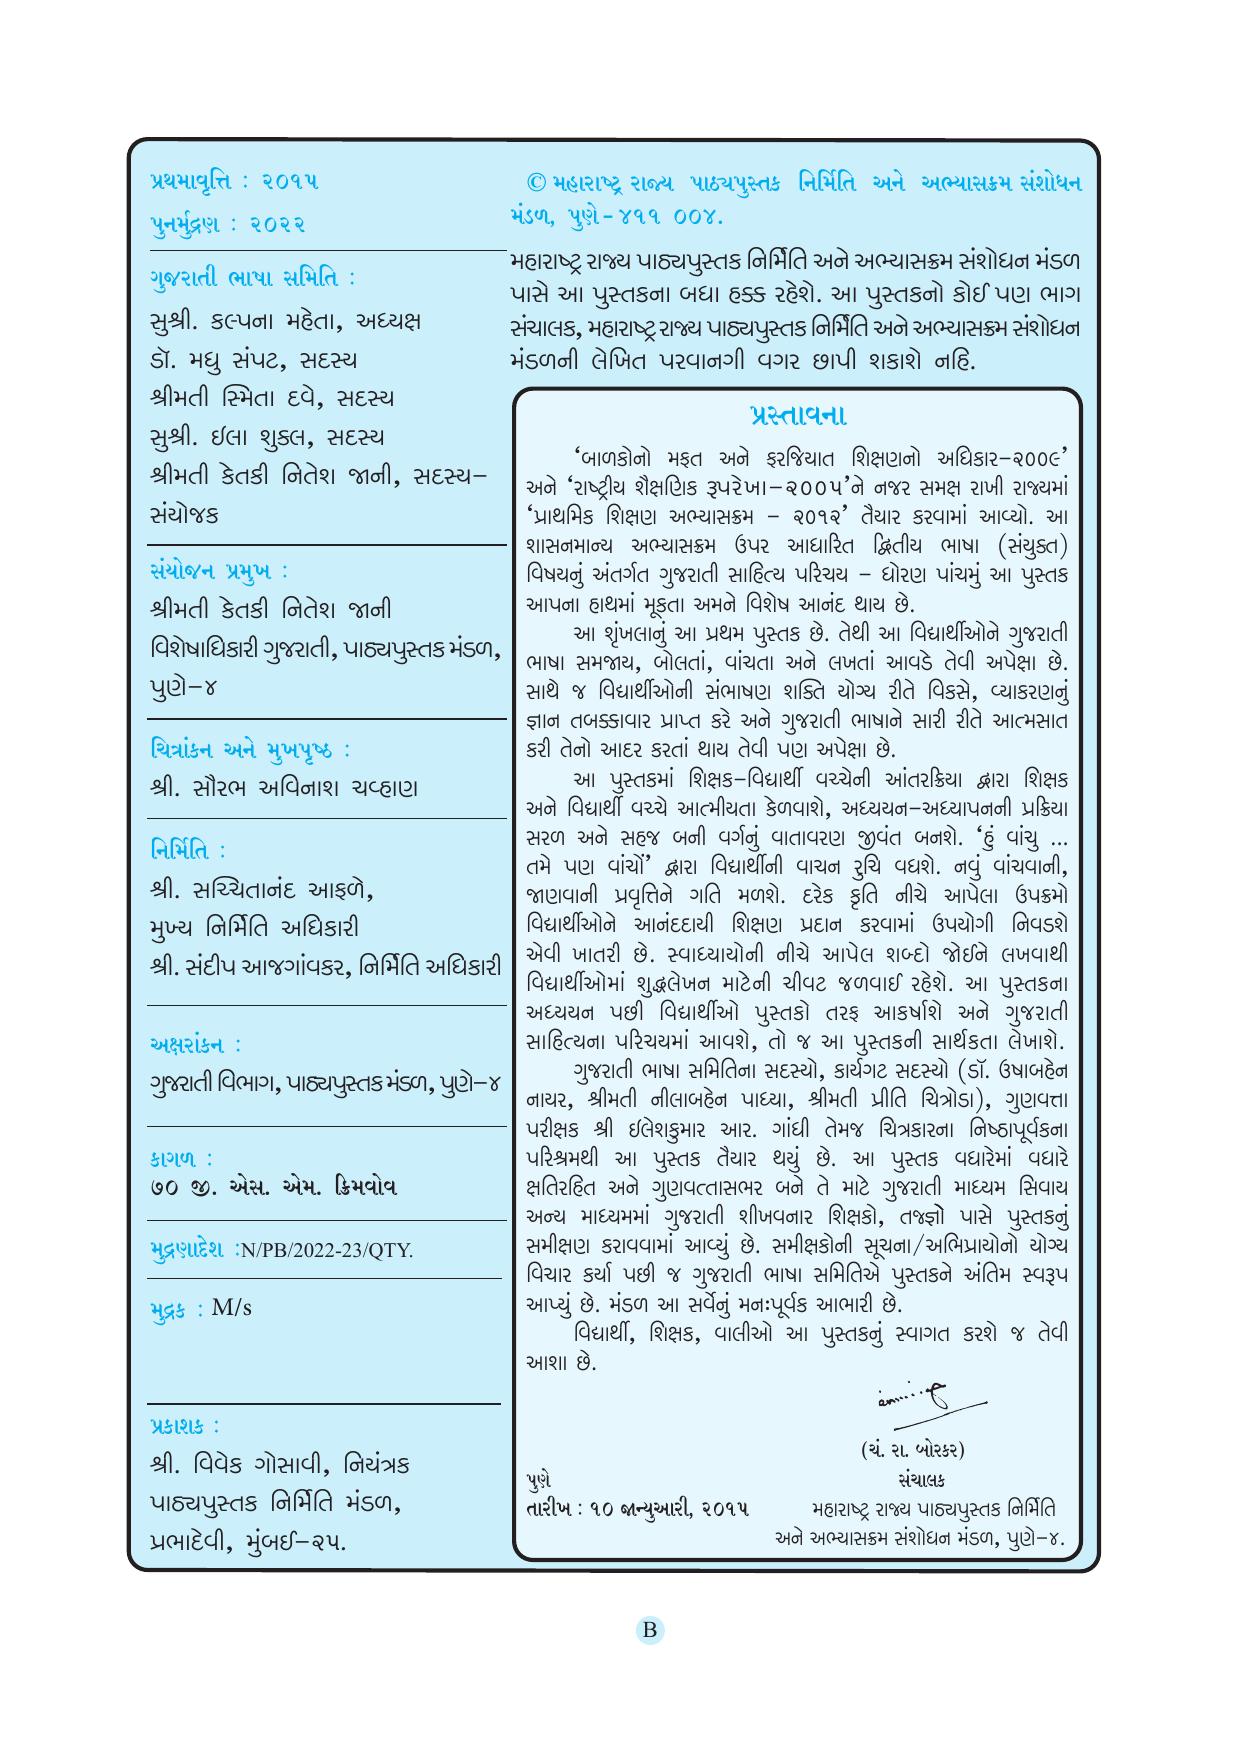 પ્રથમાવૃત્તિ : ૨૦૧૫
પુનર્મુદ્રણ : ૨૦૨૨
ગુજરાતી ભાષા સમિતિ :
સુશ્રી. કલ્પના મહેતા, અધ્યક્ષ
ડૉ. મધુ સંપટ, સદસ્ય
શ્રીમતી સ્મિતા દવે, સદસ્ય
સુશ્રી. ઈલા શુક્લ, સદસ્ય
શ્રીમતી કેતકી નિતેશ જાની, સદસ્ય–
સંયોજક
સંયોજન પ્રમુખ :
શ્રીમતી કેતકી નિતેશ જાની
વિશેષાધિકારી ગુજરાતી, પાઠ્યપુસ્તક મંડળ,
પુણે–૪
ચિત્રાંકન અને મુખપૃષ્ઠ :
શ્રી. સૌરભ અવિનાશ ચવ્હાણ
નિર્મિતિ :
શ્રી. સચ્ચિતાનંદ આફળે,
મુખ્ય નિર્મિતિ અધિકારી
શ્રી. સંદીપ આજગાંવકર, નિર્મિતિ અધિકારી
અક્ષરાંકન :
ગુજરાતી વિભાગ, પાઠ્યપુસ્તક મંડળ, પુણે–૪
કાગળ :
૭૦ જી. એસ. એમ. ક્રિમવોવ
મુદ્રણાદેશ :N/PB/2022-23/QTY.
મુદ્રક : M/s
પ્રકાશક :
શ્રી. વિવેક ગોસાવી, નિયંત્રક
પાઠ્યપુસ્તક નિર્મિતિ મંડળ,
પ્રભાદેવી, મુંબઈ–૨૫.
© મહારાષ્ટ્ર રાજ્ય પાઠ્યપુસ્તક નિર્મિતિ અને અભ્યાસક્રમ સંશોધન
મંડળ, પુણે - ૪૧૧ ૦૦૪.
મહારાષ્ટ્ર રાજ્ય પાઠ્યપુસ્તક નિર્મિતિ અને અભ્યાસક્રમ સંશોધન મંડળ
પાસે આ પુસ્તકના બધા હક્ક રહેશે. આ પુસ્તકનો કોઈ પણ ભાગ
સંચાલક, મહારાષ્ટ્ર રાજ્ય પાઠ્યપુસ્તક નિર્મિતિ અને અભ્યાસક્રમ સંશોધન
મંડળની લેખિત પરવાનગી વગર છાપી શકાશે નહિ.
પ્રસ્તાવના
‘બાળકોનો મફત અને ફરજિયાત શિક્ષણનો અધિકાર–૨૦૦૯’
અને ‘રાષ્ટ્રીય શૈક્ષણિક રૂપરેખા–૨૦૦૫’ને નજર સમક્ષ રાખી રાજ્યમાં
‘પ્રાથમિક શિક્ષણ અભ્યાસક્રમ – ૨૦૧૨’ તૈયાર કરવામાં આવ્યો. આ
શાસનમાન્ય અભ્યાસક્રમ ઉપર આધારિત દ્વિતીય ભાષા (સંયુક્ત)
વિષયનું અંતર્ગત ગુજરાતી સાહિત્ય પરિચય – ધોરણ પાંચમું આ પુસ્તક
આપના હાથમાં મૂકતા અમને વિશેષ આનંદ થાય છે.
આ શૃંખલાનું આ પ્રથમ પુસ્તક છે. તેથી આ વિદ્યાર્થીઓને ગુજરાતી
ભાષા સમજાય, બોલતાં, વાંચતા અને લખતાં આવડે તેવી અપેક્ષા છે.
સાથે જ વિદ્યાર્થીઓની સંભાષણ શક્તિ યોગ્ય રીતે વિકસે, વ્યાકરણનું
જ્ઞાન તબક્કાવાર પ્રાપ્ત કરે અને ગુજરાતી ભાષાને સારી રીતે આત્મસાત
કરી તેનો આદર કરતાં થાય તેવી પણ અપેક્ષા છે.
આ પુસ્તકમાં શિક્ષક–વિદ્યાર્થી વચ્ચેની આંતરક્રિયા દ્વારા શિક્ષક
અને વિદ્યાર્થી વચ્ચે આત્મીયતા કેળવાશે, અધ્યયન–અધ્યાપનની પ્રક્રિયા
સરળ અને સહજ બની વર્ગનું વાતાવરણ જીવંત બનશે. ‘હું વાંચુ ...
તમે પણ વાંચોં’ દ્વારા વિદ્યાર્થીની વાચન રુચિ વધશે. નવું વાંચવાની,
જાણવાની પ્રવૃત્તિને ગતિ મળશે. દરેક કૃતિ નીચે આપેલા ઉપક્રમો
વિદ્યાર્થીઓને આનંદદાયી શિક્ષણ પ્રદાન કરવામાં ઉપયોગી નિવડશે
એવી ખાતરી છે. સ્વાધ્યાયોની નીચે આપેલ શબ્દો જોઈને લખવાથી
વિદ્યાર્થીઓમાં શુદ્ધલેખન માટેની ચીવટ જળવાઈ રહેશે. આ પુસ્તકના
અધ્યયન પછી વિદ્યાર્થીઓ પુસ્તકો તરફ આકર્ષાશે અને ગુજરાતી
સાહિત્યના પરિચયમાં આવશે, તો જ આ પુસ્તકની સાર્થકતા લેખાશે.
ગુજરાતી ભાષા સમિતિના સદસ્યો, કાર્યગટ સદસ્યો (ડૉ. ઉષાબહેન
નાયર, શ્રીમતી નીલાબહેન પાધ્યા, શ્રીમતી પ્રીતિ ચિત્રોડા), ગુણવત્તા
પરીક્ષક શ્રી ઈલેશકુમાર આર. ગાંધી તેમજ ચિત્રકારના નિષ્ઠાપૂર્વકના
પરિશ્રમથી આ પુસ્તક તૈયાર થયું છે. આ પુસ્તક વધારેમાં વધારે
ક્ષતિરહિત અને ગુણવત્તાસભર બને તે માટે ગુજરાતી માધ્યમ સિવાય
અન્ય માધ્યમમાં ગુજરાતી શીખવનાર શિક્ષકો, તજ્જ્ઞો પાસે પુસ્તકનું
સમીક્ષણ કરાવવામાં આવ્યું છે. સમીક્ષકોની સૂચના/અભિપ્રાયોનો યોગ્ય
વિચાર કર્યા પછી જ ગુજરાતી ભાષા સમિતિએ પુસ્તકને અંતિમ સ્વરૂપ
આપ્યું છે. મંડળ આ સર્વેનું મનઃપૂર્વક આભારી છે.
વિદ્યાર્થી, શિક્ષક, વાલીઓ આ પુસ્તકનું સ્વાગત કરશે જ તેવી
આશા છે.
(ચં. રા. બોરકર)
પુણે સંચાલક
તારીખ : ૧૦ જાન્યુઆરી, ૨૦૧૫ મહારાષ્ટ્ર રાજ્ય પાઠ્યપુસ્તક નિર્મિતિ
અને અભ્યાસક્રમ સંશોધન મંડળ, પુણે–૪.
B